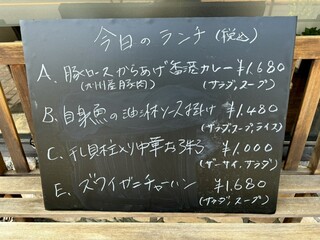 今日のランチ (税込)
A. 豚ロースからあげ香港カレー ¥1,680
(九州産豚肉) (サラダ、スープ)
B. 白身魚の油淋ソース掛け ¥1,480
(サラダ、スープ、ライス)
C. 干貝柱入り中華お粥 ¥1,000
(ザーサイ、サラダ)
E. ズワイガニチャーハン ¥1,680
(サラダ、スープ)